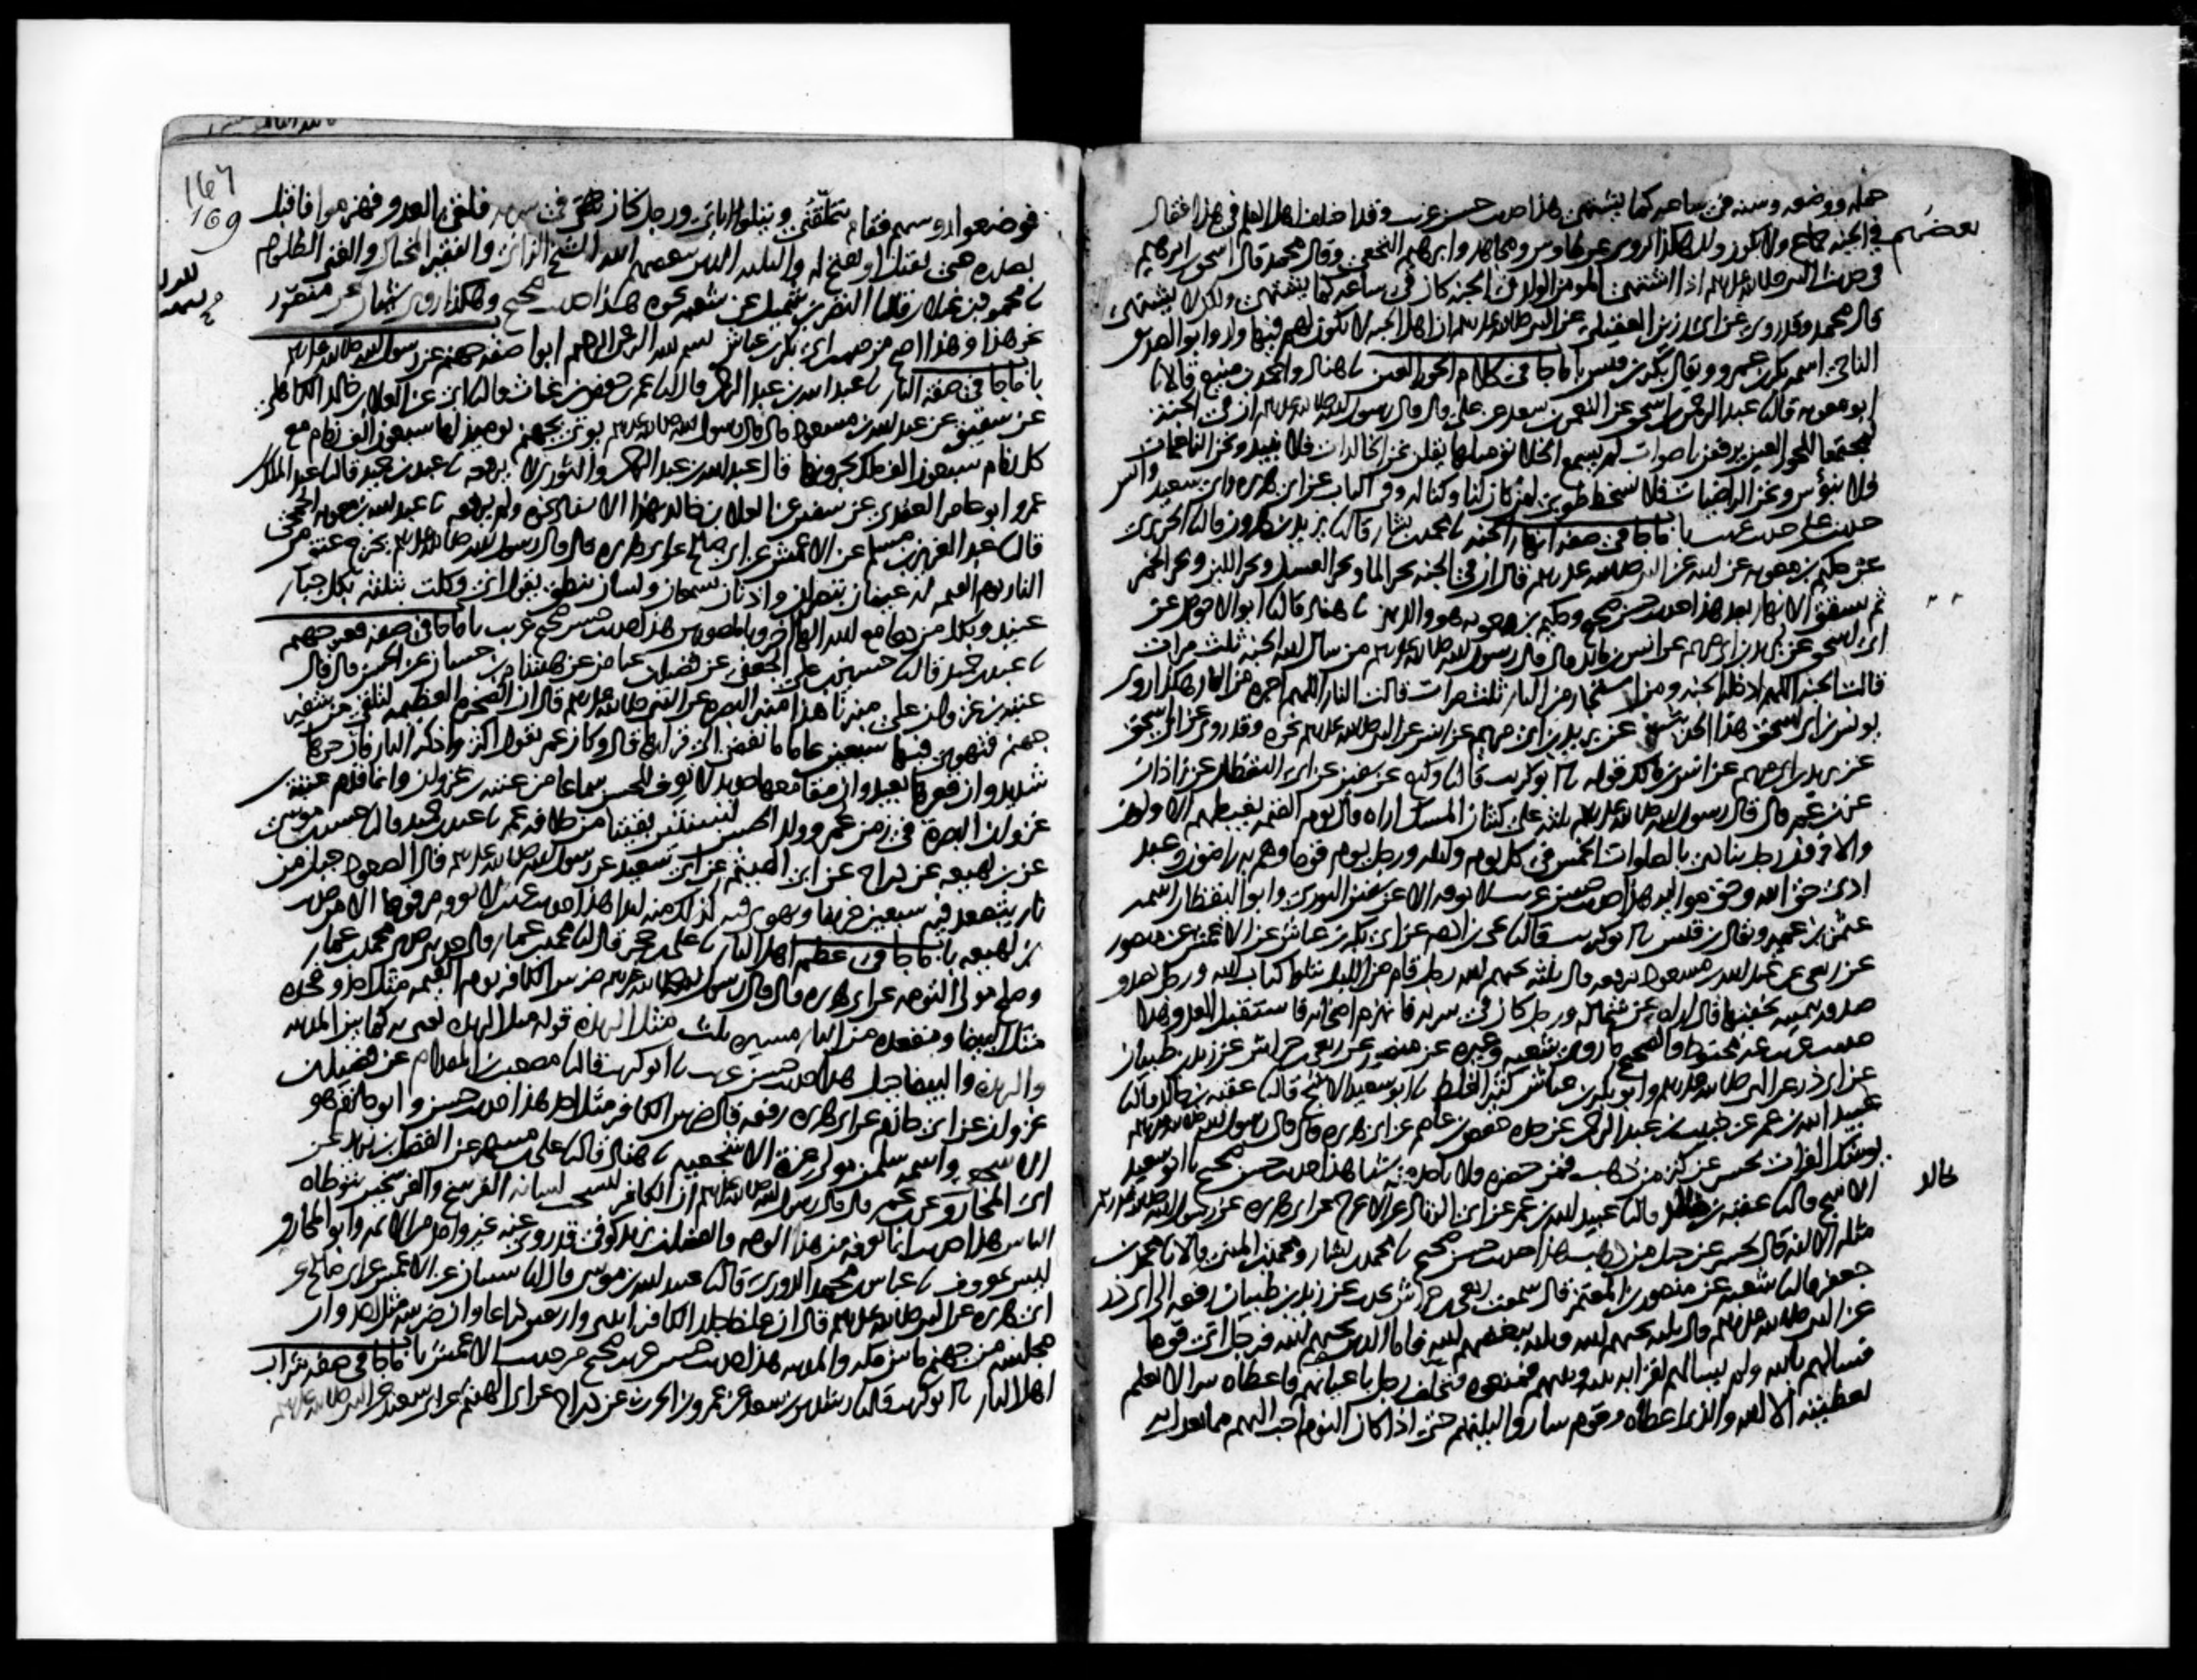 حمله ووضعه وسنه في ساعه كما يشتهي هذا حديث حسن غريب وقد اختلف اهل العلم في هذا فقال
بعضهم في الجنه جماع ولا يكون ولد هكذا روي عن طاوس ومجاهد وابرهيم النخعي وقال محمد قال اسحق بن ابرهيم
في حديث النبي صلى الله عليه وسلم اذا اشتهى المومن الولد في الجنه كان في ساعه كما يشتهي ولكن لا يشتهي
قال محمد وقد روي عن ابي رزين العقيلي عن النبي صلى الله عليه وسلم ان اهل الجنه لا يكون لهم فيها ولد وابو الصديق
الناجي اسمه بكر بن عمرو ويقال بكر بن قيس باب ما جا في كلام الحور العين نا هناد واحمد بن منيع قالا نا
ابو معويه قال نا عبد الرحمن بن اسحق عن النعمن بن سعد عن علي قال قال رسول الله صلى الله عليه وسلم ان في الجنه
لمجتمعا للحور العين يرفعن باصوات لم يسمع الخلايق مثلها يقلن نحن الخالدات فلا نبيد ونحن الناعمات
فلا نبؤس ونحن الراضيات فلا نسخط طوبى لمن كان لنا وكنا له وفي الباب عن ابي هريره وابي سعيد وانس
حديث علي حديث غريب باب ما جا في صفه انهار الجنه نا محمد بن بشار قال نا يزيد بن هارون قال نا الجريري
عن حكيم بن معويه عن ابيه عن النبي صلى الله عليه وسلم قال ان في الجنه بحر الما وبحر العسل وبحر اللبن وبحر الخمر
ثم تشقق الانهار بعد هذا حديث حسن صحيح وحكيم بن معويه هو والد بهز نا هناد قال نا ابو الاحوص عن
ابي اسحق عن بريد بن ابي مريم عن انس بن مالك قال قال رسول الله صلى الله عليه وسلم من سال الله الجنه ثلث مرات
قالت الجنه اللهم ادخله الجنه ومن استجار من النار ثلث مرات قالت النار اللهم اجره من النار هكذا روى
يونس بن ابي اسحق هذا الحديث عن بريد بن ابي مريم عن انس عن النبي صلى الله عليه وسلم نحوه وقد روي عن ابي اسحق
عن بريد بن ابي مريم عن انس بن مالك قوله نا ابو كريب قال نا وكيع عن سفين عن ابي اليقظان عن زاذان
عن ابن عمر قال قال رسول الله صلى الله عليه وسلم ثلثه على كثبان المسك اراه قال يوم القيمه يغبطهم الاولون
والاخرون رجل ينادي بالصلوات الخمس في كل يوم وليله ورجل يوم قوما وهم به راضون وعبد
ادى حق الله وحق مواليه هذا حديث حسن غريب لا نعرفه الا من حديث سفين الثوري وابو اليقظان اسمه
عثمن بن عمير ويقال بن قيس نا ابو كريب قال نا يحيى بن ادم عن ابي بكر بن عياش عن الاعمش عن منصور
عن ربعي عن عبد الله بن مسعود يرفعه قال ثلثه يحبهم الله رجل قام من الليل يتلوا كتاب الله ورجل تصدق
صدقه بيمينه يخفيها قال اراه عن شماله ورجل كان في سريه فانهزم اصحابه فاستقبل العدو هذا
حديث غريب غير محفوظ والصحيح ما روى شعبه وغيره عن منصور عن ربعي بن حراش عن زيد بن ظبيان
عن ابي ذر عن النبي صلى الله عليه وسلم وابو بكر بن عياش كثير الغلط نا ابو سعيد الاشج قال نا عقبه بن خالد قال نا
عبيد الله بن عمر عن خبيب بن عبد الرحمن عن جده حفص بن عاصم عن ابي هريره قال قال رسول الله صلى الله عليه وسلم
يوشك الفرات يحسر عن كنز من ذهب فمن حضره فلا ياخذ منه شيا هذا حديث حسن صحيح نا ابو سعيد
الاشج قال نا عقبه بن خالد قال نا عبيد الله بن عمر عن ابي الزناد عن الاعرج عن ابي هريره عن رسول الله صلى الله عليه وسلم
خالد
مثله الا انه قال يحسر عن جبل من ذهب هذا حديث حسن صحيح نا محمد بن بشار ومحمد بن المثنى قالا نا محمد بن
جعفر قال نا شعبه عن منصور بن المعتمر قال سمعت ربعي بن حراش يحدث عن زيد بن ظبيان رفعه الى ابي ذر
عن النبي صلى الله عليه وسلم قال ثلثه يحبهم الله وثلثه يبغضهم الله فاما الذين يحبهم الله فرجل اتى قوما
فسالهم بالله ولم يسالهم لقرابه بينه وبينهم فمنعوه فتخلف رجل باعيانهم فاعطاه سرا لا يعلم
بعطيته الا الله والذي اعطاه وقوم ساروا ليلتهم حتى اذا كان النوم احب اليهم مما يعدل به
167
169
فوضعوا روسهم فقام يتملقني ويتلوا اياتي ورجل كان في سريه فلقي العدو فهزموا فاقبل
بصدره حتى يقتل او يفتح له والثلثه الذين يبغضهم الله الشيخ الزاني والفقير المختال والغني الظلوم
نا محمود بن غيلان قال نا النضر بن شميل عن شعبه نحوه هذا حديث صحيح وهكذا روى شيبان عن منصور
نحو هذا وهذا اصح من حديث ابي بكر بن عياش بسم الله الرحمن الرحيم ابواب صفه جهنم عن رسول الله صلى الله عليه وسلم
باب ما جا في صفه النار نا عبد الله بن عبد الرحمن قال نا عمر بن حفص بن غياث قال نا ابي عن العلا بن خالد الكاهلي
عن شقيق عن عبد الله بن مسعود قال قال رسول الله صلى الله عليه وسلم يوتى بجهنم يوميذ لها سبعون الف زمام مع
كل زمام سبعون الف ملك يجرونها قال عبد الله بن عبد الرحمن والثوري لا يرفعه نا عبد بن حميد قال نا عبد الملك بن
عمرو ابو عامر العقدي عن سفين عن العلا بن خالد بهذا الاسناد نحوه ولم يرفعه نا عبد الله بن معويه الجمحي
قال نا عبد العزيز بن مسلم عن الاعمش عن ابي صالح عن ابي هريره قال قال رسول الله صلى الله عليه وسلم يخرج عنق من
النار يوم القيمه له عينان تبصران واذنان تسمعان ولسان ينطق يقول اني وكلت بثلثه بكل جبار
عنيد وبكل من دعا مع الله الها اخر وبالمصورين هذا حديث حسن صحيح غريب باب ما جا في صفه قعر جهنم
نا عبد بن حميد قال نا حسين بن علي الجعفي عن فضيل بن عياض عن هشام بن حسان عن الحسن قال قال
عتبه بن غزوان على منبرنا هذا منبر البصره عن النبي صلى الله عليه وسلم قال ان الصخره العظيمه لتلقى من شفير
جهنم فتهوي فيها سبعين عاما ما تفضي الى قرارها قال وكان عمر يقول اكثروا ذكر النار فان حرها
شديد وان قعرها بعيد وان مقامعها حديد لا نعرف للحسن سماعا من عتبه بن غزوان وانما قدم عتبه بن
غزوان البصره في زمن عمر وولد الحسن لسنتين بقيتا من خلافه عمر نا عبد بن حميد قال نا حسن بن موسى
عن بن لهيعه عن دراج عن ابي الهيثم عن ابي سعيد عن رسول الله صلى الله عليه وسلم قال الصعود جبل من
نار يتصعد فيه سبعين خريفا ويهوي فيه كذلك منه ابدا هذا حديث غريب لا نعرفه مرفوعا الا من حديث
بن لهيعه باب ما جا في عظم اهل النار نا علي بن حجر قال نا محمد بن عمار قال حدثني جدي محمد بن عمار
وصالح مولى التوءمه عن ابي هريره قال قال رسول الله صلى الله عليه وسلم ضرس الكافر يوم القيمه مثل احد وفخذه
مثل البيضا ومقعده من النار مسيره ثلث مثل الربذه قوله مثل الربذه يعني به كما بين المدينه
والربذه والبيضا جبل هذا حديث حسن غريب نا ابو كريب قال نا مصعب بن المقدام عن فضيل بن
غزوان عن ابي حازم عن ابي هريره رفعه قال ضرس الكافر مثل احد هذا حديث حسن وابو حازم هو
الاشجعي واسمه سلمن مولى عزه الاشجعيه نا هناد قال نا علي بن مسهر عن الفضل بن يزيد عن
ابي المخارق عن بن عمر قال قال رسول الله صلى الله عليه وسلم ان الكافر ليسحب لسانه الفرسخ والفرسخين يتوطاه
الناس هذا حديث انما نعرفه من هذا الوجه والفضل بن يزيد كوفي قد روى عنه غير واحد من الايمه وابو المخارق
ليس بمعروف نا عباس بن محمد الدوري قال نا عبيد الله بن موسى قال نا شيبان عن الاعمش عن ابي صالح عن
ابي هريره عن النبي صلى الله عليه وسلم قال ان غلظ جلد الكافر اثنين واربعين ذراعا وان ضرسه مثل احد وان
مجلسه من جهنم ما بين مكه والمدينه هذا حديث حسن غريب صحيح من حديث الاعمش باب ما جا في صفه شراب
اهل النار نا ابو كريب قال نا رشدين بن سعد عن عمرو بن الحرث عن دراج عن ابي الهيثم عن ابي سعيد عن النبي صلى الله عليه وسلم